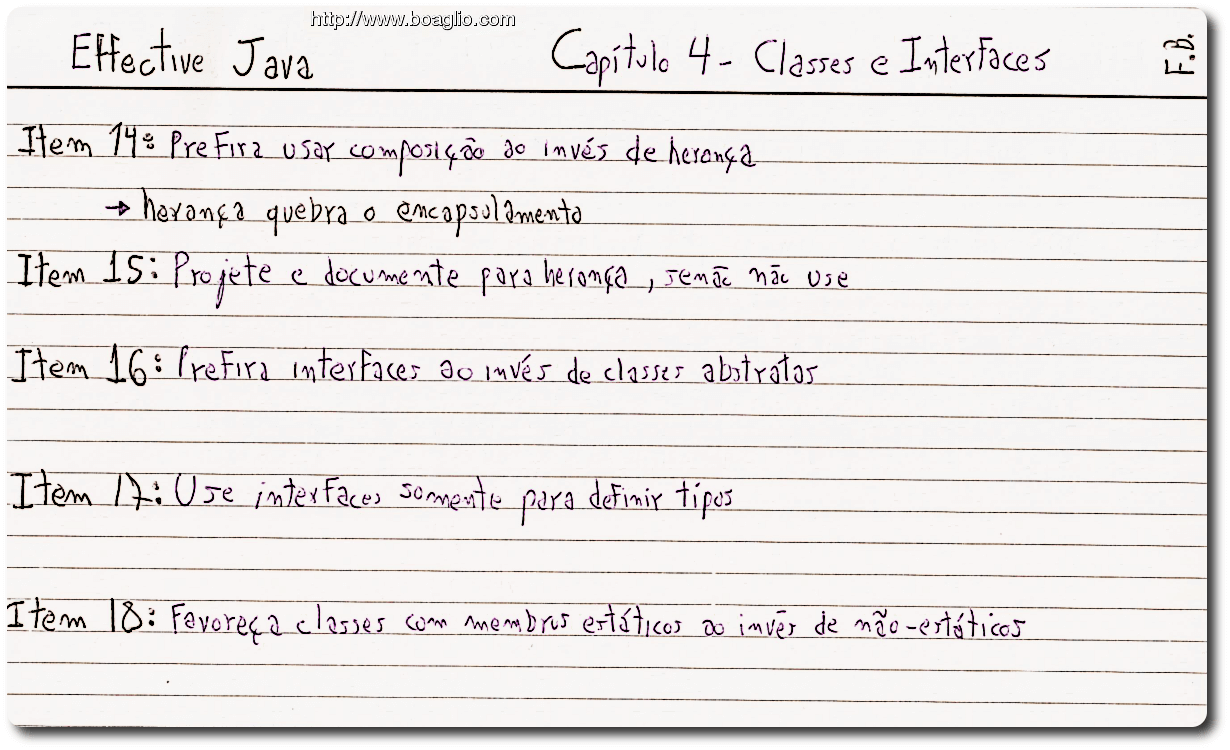 http://www.boaglio.com
Effective Java Capítulo 4 - Classes e Interfaces F.B.
Item 14: Prefira usar composição ao invés de herança
→ herança quebra o encapsulamento
Item 15: Projete e documente para herança, senão não use
Item 16: Prefira interfaces ao invés de classes abstratas
Item 17: Use interfaces somente para definir tipos
Item 18: Favoreça classes com membros estáticos ao invés de não-estáticos